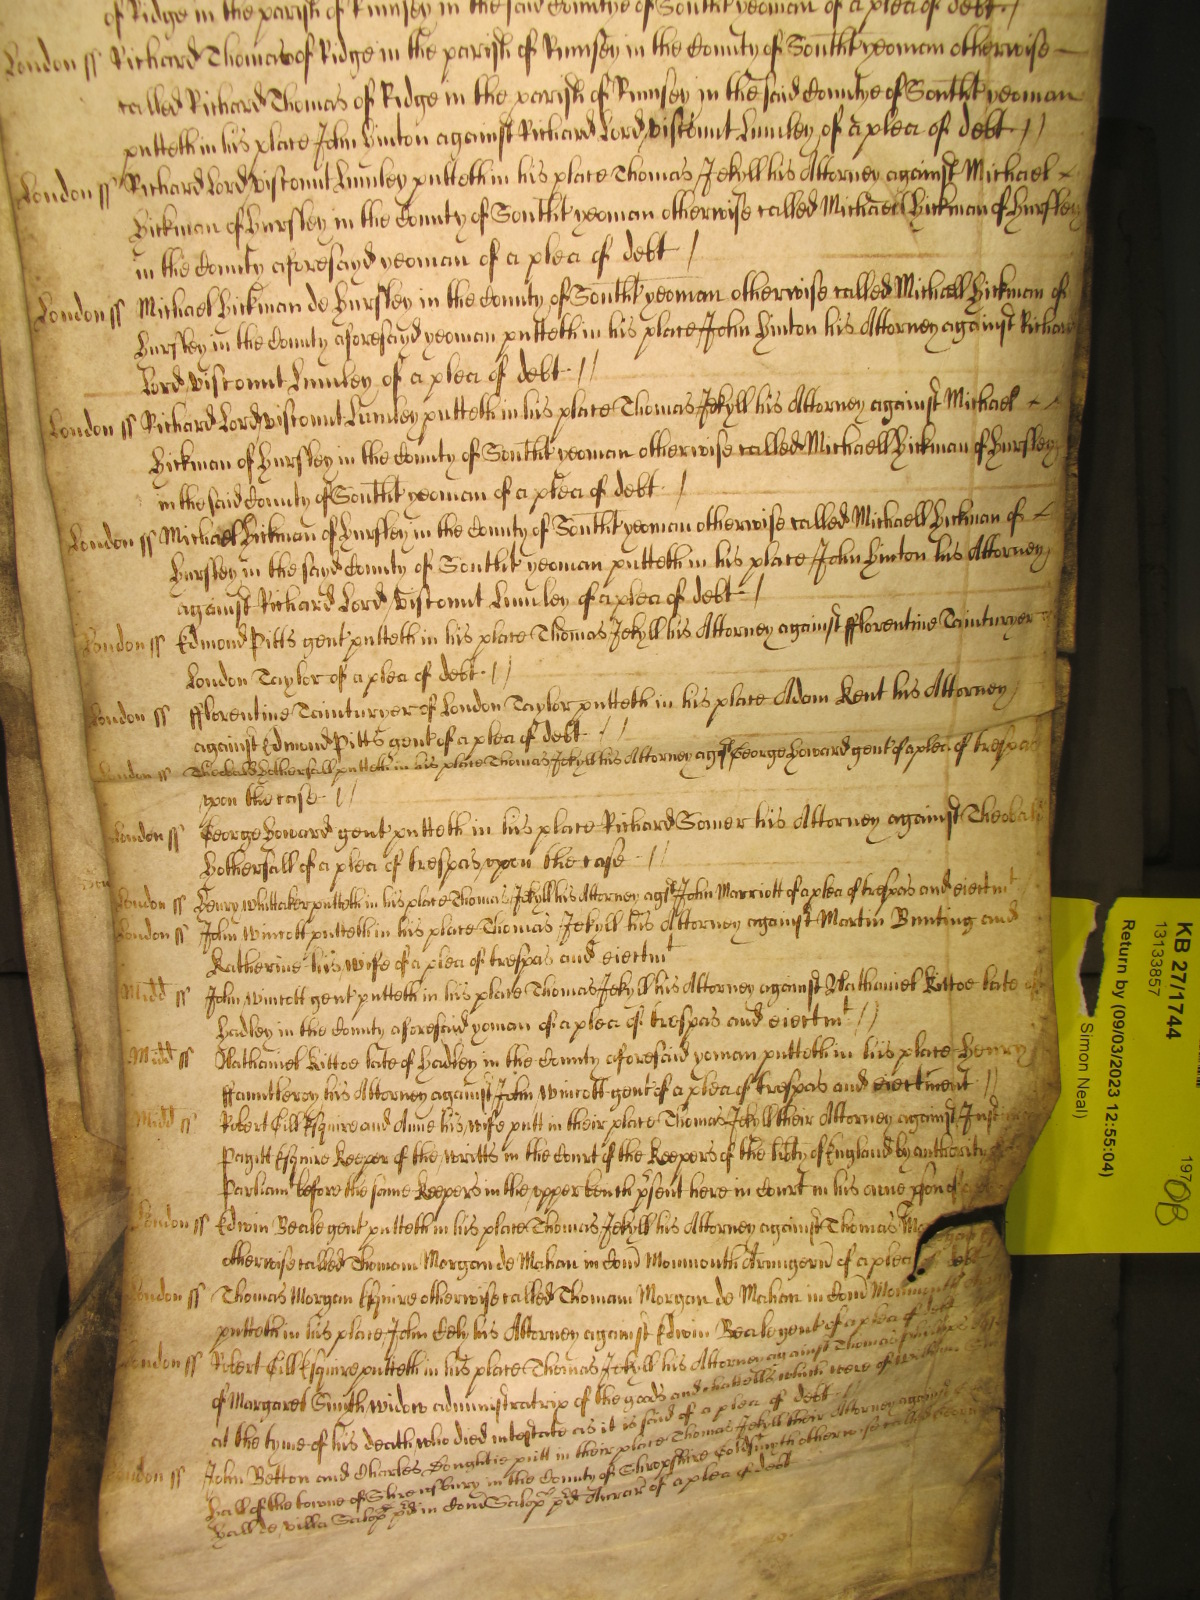 of Ridge in the parish of Rumsey in the said Countye of Southt yeoman of a plea of debt
London ss Richard Thomas of Ridge in the parish of Rumsey in the County of Southt yeoman otherwise
called Richard Thomas of Ridge in the parish of Rumsey in the said Countye of Southt yeoman
putteth in his place John Hinton against Richard Lord Viscount Lumley of a plea of debt
London ss Richard Lord Viscount Lumley putteth in his place Thomas Jekyll his Attorney against Michael
Hickman of Hursley in the County of Southt yeoman otherwise called Michaell Hickman of Hursley
in the County aforesayd yeoman of a plea of debt
London ss Michael Hickman de Hursley in the County of Southt yeoman otherwise called Michaell Hickman of
Hursley in the County aforesayd yeoman putteth in his place John Hinton his Attorney against Richard
Lord Viscount Lumley of a plea of debt
London ss Richard Lord Viscount Lumley putteth in his place Thomas Jekyll his Attorney against Michael
Hickman of Hursley in the County of Southt yeoman otherwise called Michaell Hickman of Hursley
in the said County of Southt yeoman of a plea of debt
London ss Michael Hickman of Hursley in the County of Southt yeoman otherwise called Michaell Hickman of
Hursley in the sayd County of Southt yeoman putteth in his place John Hinton his Attorney
against Richard Lord Viscount Lumley of a plea of debt
London ss Edmond Pitts gent putteth in his place Thomas Jekyll his Attorney against fflorentine Tainturyer
London Taylor of a plea of debt
London ss fflorentine Tainturyer of London Taylor putteth in his place Adam Kent his Attorney
against Edmond Pitts gent of a plea of debt
London ss Theobald Hothersall putteth in his place Thomas Jekyll his Attorney agst George Howard gent of a plea of trespas
upon the case
London ss George Howard gent putteth in his place Richard Somer his Attorney against Theobald
Hothersall of a plea of trespas upon the case
London ss Henry Whittaker putteth in his place Thomas Jekyll his Attorney agst John Marriott of a plea of trespas and eiectmt
London ss John Wincott putteth in his place Thomas Jekyll his Attorney against Martin Bunting and
Katherine his wife of a plea of trespas and eiectmt
Midd ss John Wincott gent putteth in his place Thomas Jekyll his Attorney against Nathaniel Kittoe late of
Hadley in the County aforesaid yoman of a plea of trespas and eiectmt
Midd ss Nathaniel Kittoe late of Hadley in the County aforesaid yoman putteth in his place Henry
ffauntleroy his Attorney against John Wincott gent of a plea of trespas and eiectment
Midd ss Robert Gill Esquire and Anne his wife putt in their place Thomas Jekyll their Attorney against
Pagitt Esquire Keeper of the writts in the Court of the Keepers of the libty of England by authority of
Parliamt before the same Keepers in the upper bench psent here in Court in his owne pson of a
London ss Edwin Beale gent putteth in his place Thomas Jekyll his Attorney against Thomas Morgan
otherwise called Thomam Morgan de Mahan in Com Monmouth Armigerum of a plea of debt
London ss Thomas Morgan Esquire otherwise called Thomam Morgan de Mahan in Com Monmouth
putteth in his place John Cely his Attorney against Edwin Beale gent of a plea of debt
London ss Robert Gill Esquire putteth in his place Thomas Jekyll his Attorney against Thomas
of Margaret Smith widow administratrix of the goods and chattells which were of William
at the tyme of his death who died intestate as it is said of a plea of debt
London ss John Betton and Charles putt in their place Thomas Jekyll their Attorney against
Hall of the towne of Shrewsbury in the County of Shropshire Goldsmyth otherwise called
Hall de villa Salop pd in Com Salop pd of a plea of debt
KB 27/1744
13133857
Return by (09/03/2023 12:55:04)
Simon Neal)